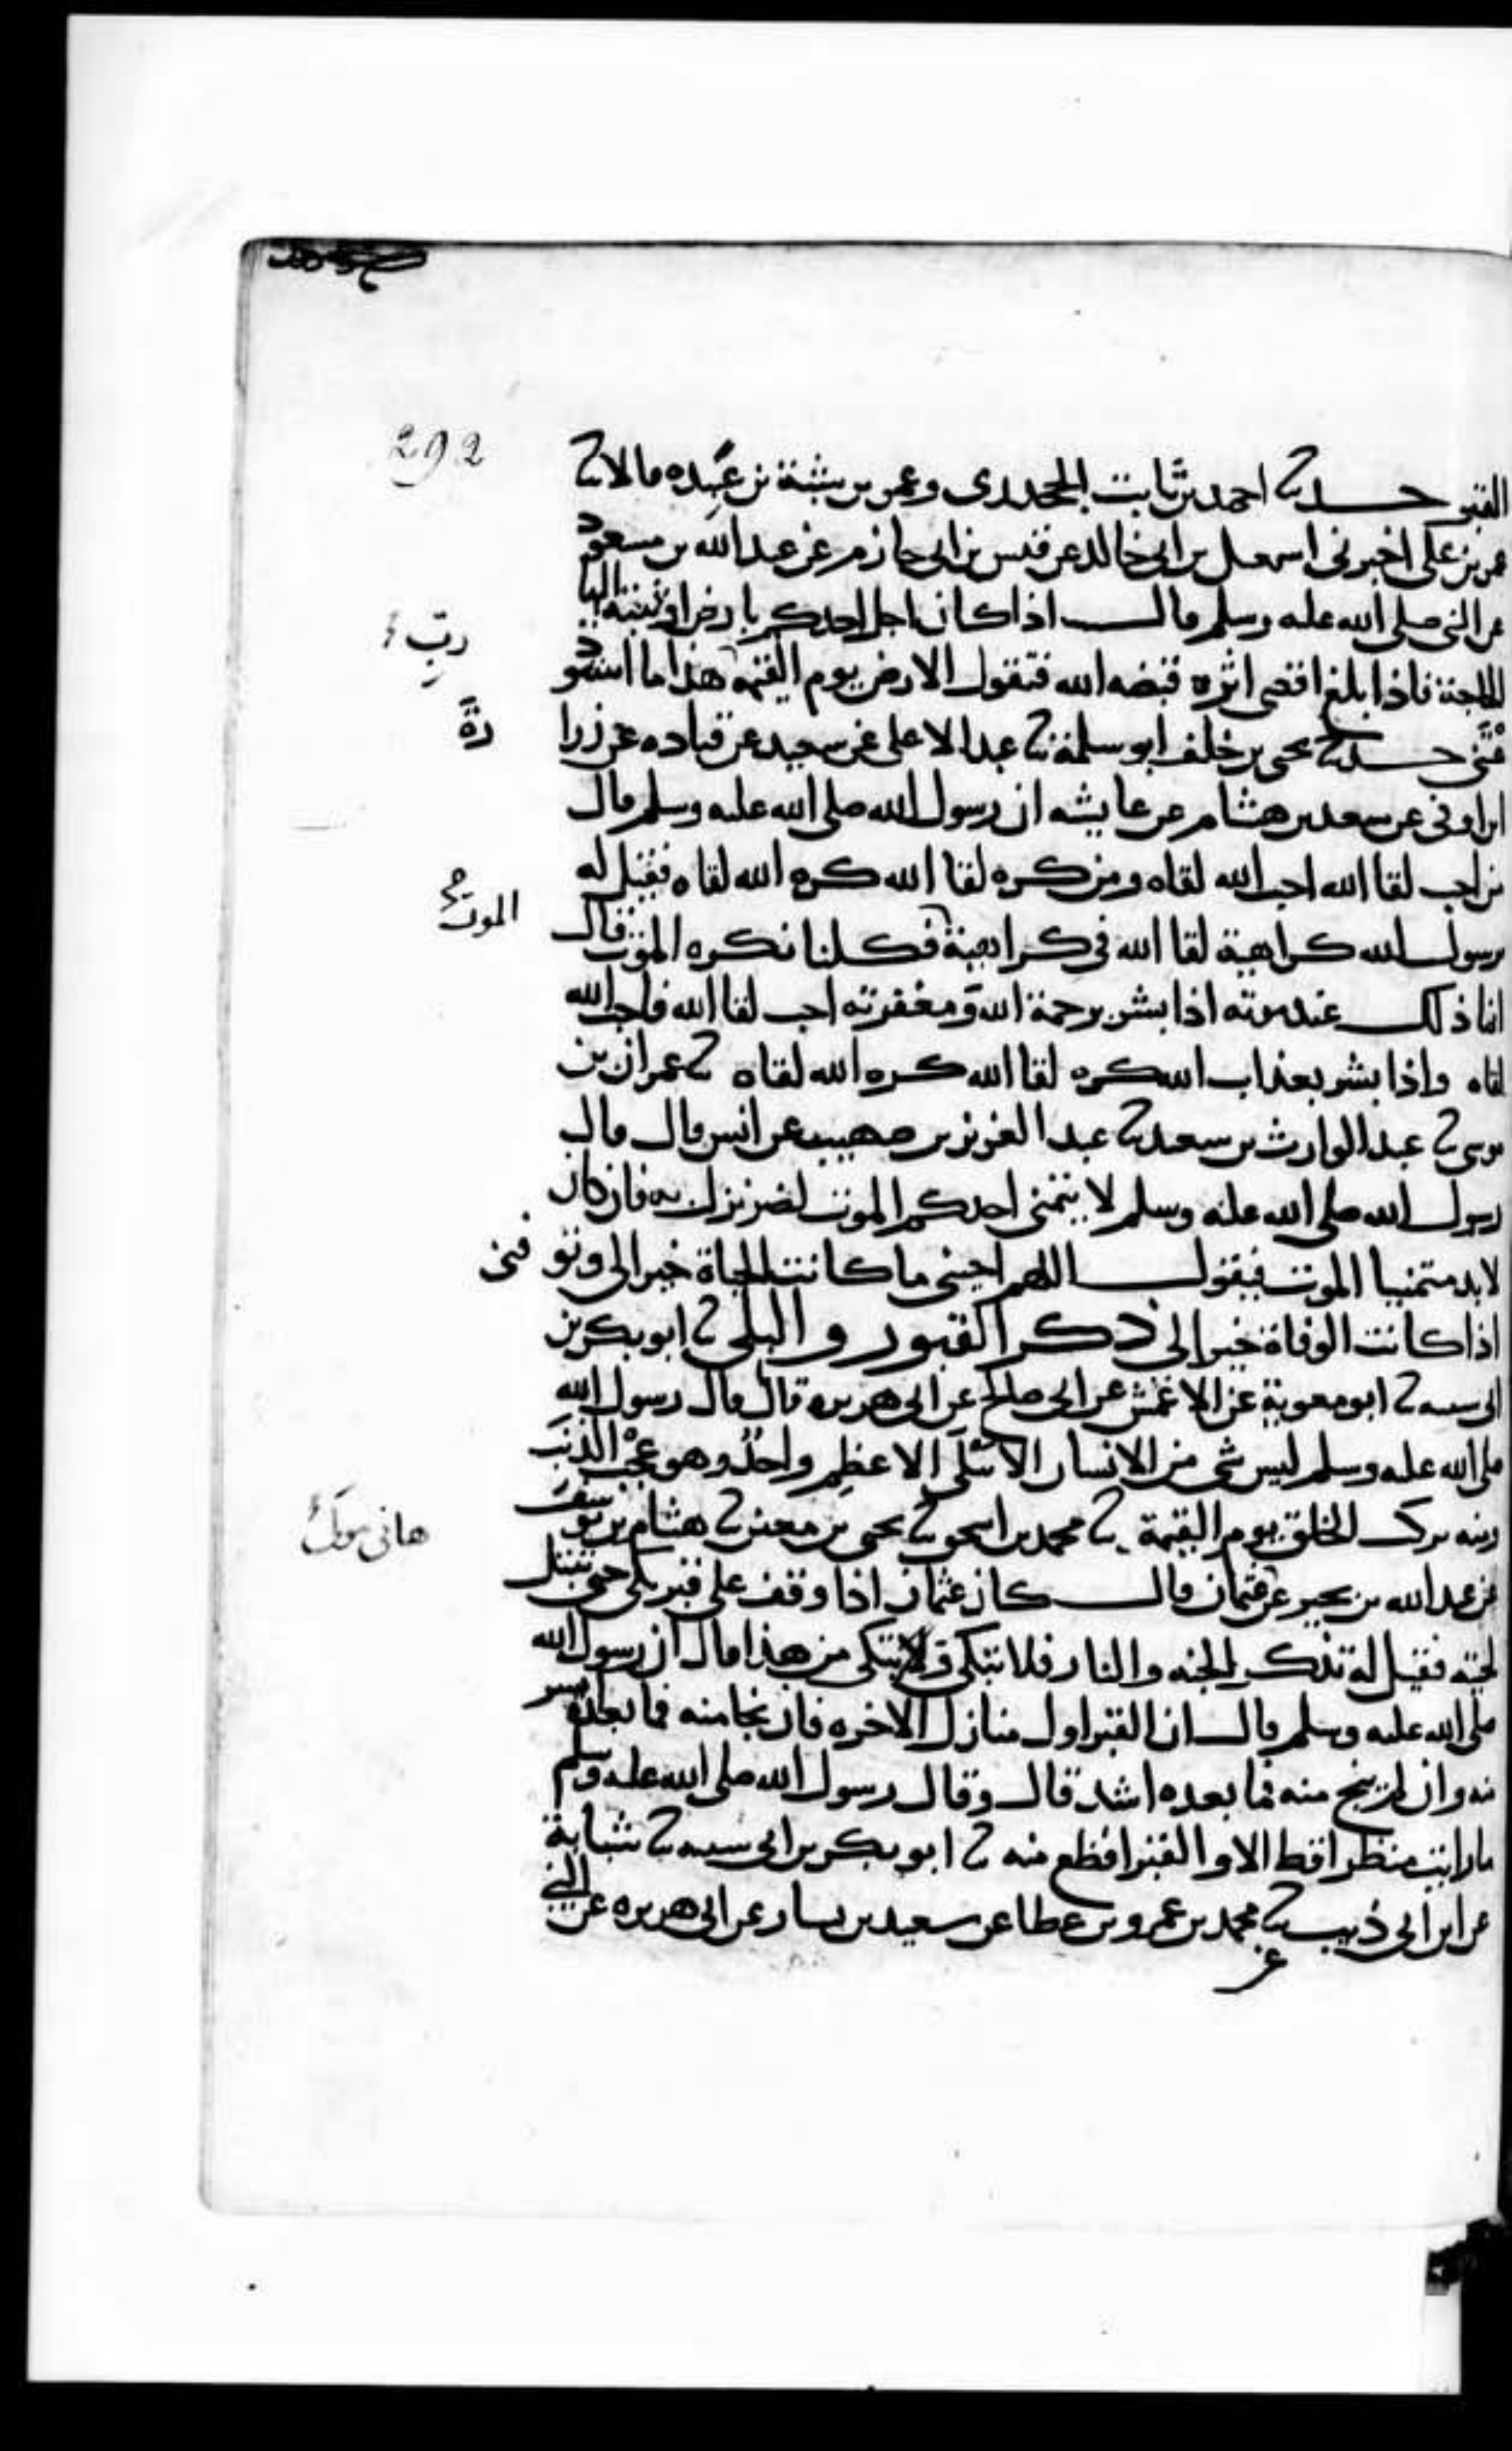 292
القبر حدثنا احمد بن ثابت الجحدري وعمر بن شبة بن عبيده قالا ثنا
عمر بن علي اخبرني اسمعيل بن ابي خالد عن قيس بن ابي حازم عن عبد الله بن مسعود
عن النبي صلى الله عليه وسلم قال اذا كان اجل احدكم بارض اوثبته اليها
رب
الحاجة فاذا بلغ اقصى اثره قبضه الله فتقول الارض يوم القيمة هذا ما استود
عتني حدثنا يحيى بن خلف ابو سلمة ثنا عبد الاعلى عن سعيد عن قتاده عن زرا
رة
ابن اوفى عن سعد بن هشام عن عايشه ان رسول الله صلى الله عليه وسلم قال
من احب لقا الله احب الله لقاه ومن كره لقا الله كره الله لقاه فقيل له
الموت
يرسول الله كراهية لقا الله في كراهية فكلنا نكره الموت قال
انما ذلك عند موته اذا بشر برحمة الله ومغفرته احب لقا الله فاحب الله
لقاه واذا بشر بعذاب الله كره لقا الله كره الله لقاه ثنا عمران بن
موسى ثنا عبد الوارث بن سعيد ثنا عبد العزيز بن صهيب عن انس قال قال
رسول الله صلى الله عليه وسلم لا يتمنى احدكم الموت لضر نزل به فان كان
لابد متمنيا الموت فيقول اللهم احيني ما كانت الحياة خيرا لي وتو فني
اذا كانت الوفاة خيرا لي ذكر القبور و البلى ثنا ابو بكر بن
ابي شيبه ثنا ابو معوية عن الاعمش عن ابي صالح عن ابي هريره قال قال رسول الله
صلى الله عليه وسلم ليس شي من الانسان الا يبلى الا عظم واحد وهو عجب الذنب
ومنه يركب الخلق يوم القيمة ثنا محمد بن اسحق ثنا يحيى بن معين ثنا هشام بن يوسف
عن عبد الله بن بحير عن عثمان قال كان عثمان اذا وقف على قبر بكى حتى تبتل
هاني مولى
لحيته فقيل له تذكر الجنه والنار فلا تبكي وتبكي من هذا قال ان رسول الله
صلى الله عليه وسلم قال ان القبر اول منازل الاخره فان نجا منه فما بعده ايسر
منه وان لم ينج منه فما بعده اشد قال وقال رسول الله صلى الله عليه وسلم
ما رايت منظرا قط الا و القبر افظع منه ثنا ابو بكر بن ابي شيبه ثنا شبابة
عن ابن ابي ذيب ثنا محمد بن عمرو بن عطا عن سعيد بن يسار عن ابي هريره عن النبي
عن